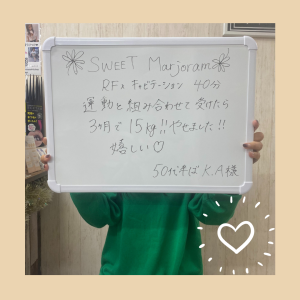 SWEET Marjoram
RF×キャビテーション 40分
運動と組み合わせて受けたら
3ヶ月で15kg!!やせました!!
嬉しい♡
50代半ば K.A様